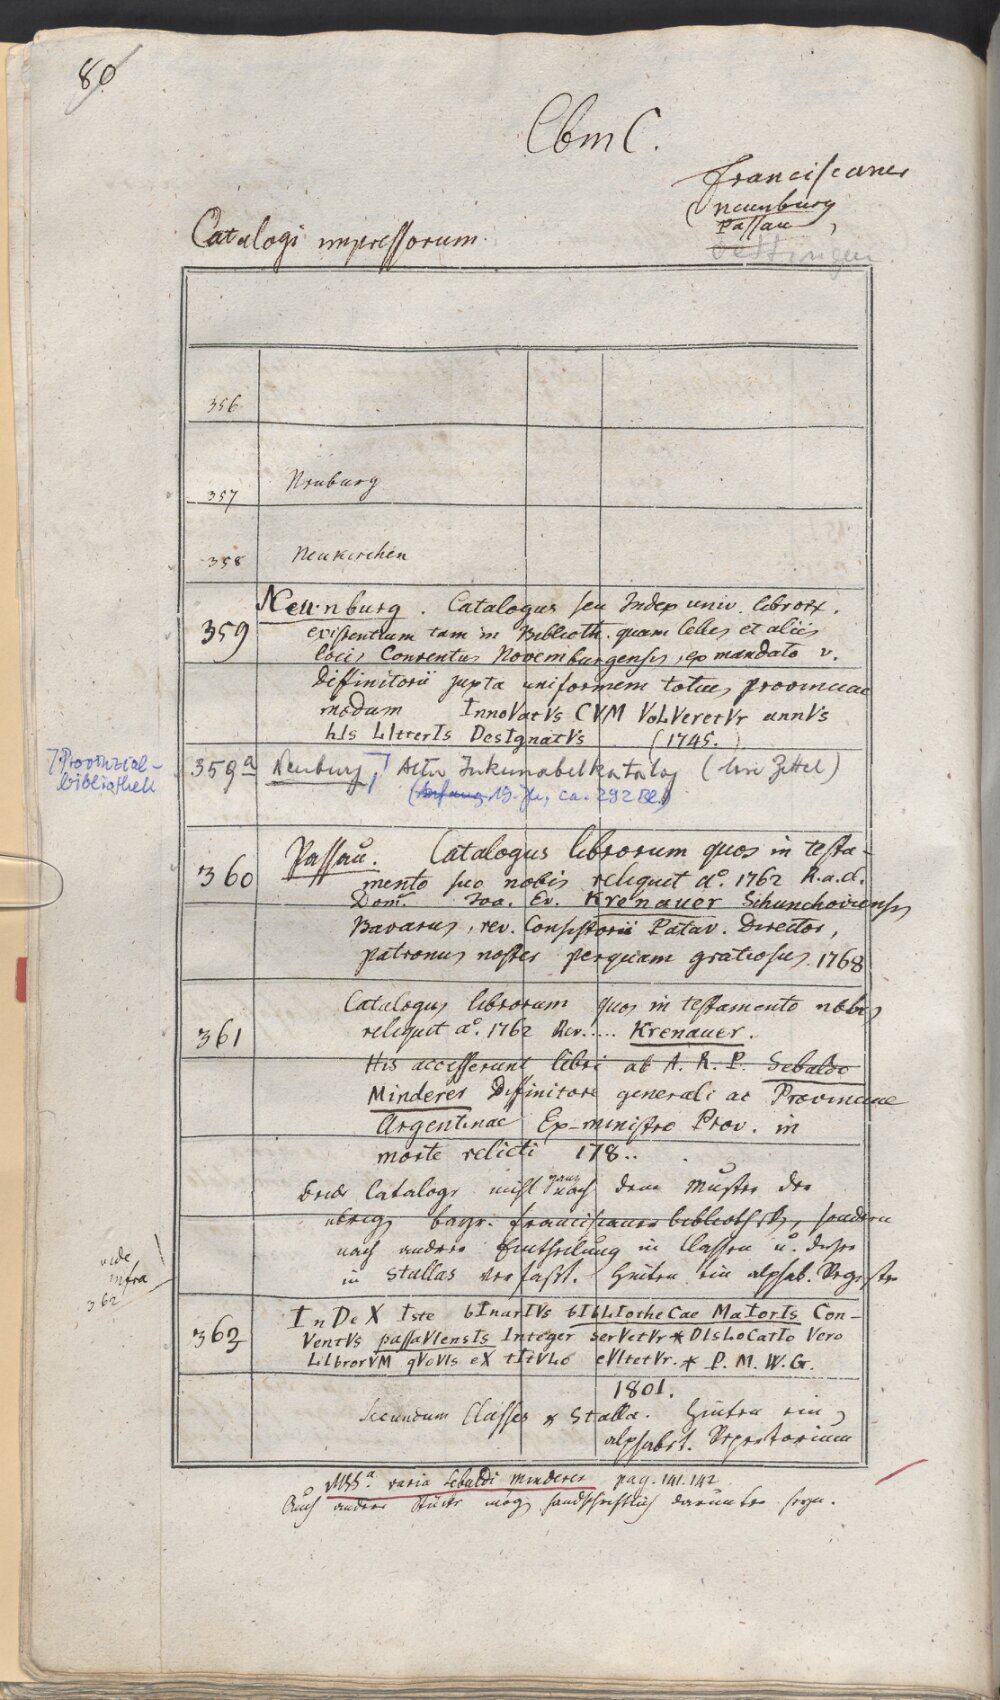 80
Cbm C.
Franciscaner
Neunburg
Passau
Oettingen
Catalogi impressorum.
356
357 Neuburg
358 Neukirchen
Neunburg. Catalogus seu Index univ. libror.
359 existentium tam in Biblioth. quam cellis et aliis
locis Conventus Novemburgensis, ex mandato v.
Diffinitorii juxta uniformem totius provinciae
modum InnoVatVs CVM VoLVeretVr annVs
hIs LItterIs DesIgnatVs (1745.)
359a Neuburg, Alter Inkunabelkatalog ( Zettel)
Provinzial-
bibliothek
(Anfang 19. Jh., ca. 292 Bl.)
Passau. Catalogus librorum quos in testa-
360 mento suo nobis reliquit aº. 1762 R.a.d.
Dom. Joa. Ev. Krenauer Schunchoviensis
Bavarus, rev. Consistorii Patav. Director,
patronus noster perquam gratiosus. 1768
Catalogus librorum quos in testamento nobis
361 reliquit aº. 1762 Rev..... Krenauer.
His accesserunt libri ab A. R. P. Sebaldo
Minderer Diffinitore generali ac Provinciae
Argentinae Ex-ministro Prov. in
morte relicti 178..
Beide Catalogi nicht ganz nach dem Muster der
übrig. bayr. Franciscaner bibliothek, sondern
nach anderer Eintheilung in Classen u. dieser
in Stallas verfaßt. Hinten ein alphab. Register
vide
infra
362
InDeX Iste bInarIVs bIbLIotheCae MaIorIs Con-
362 VentVs passaVIensIs Integer serVetVr * DIsLoCatIo Vero
LIbrorVM qVoVIs eX tItVLo eVItetVr. * P. M. W. G.
1801.
Secundum Classes & Stalla. Hinten ein
alphabet. Repertorium
MSSa. varia Sebaldi Minderer pag. 141. 142
Auch andere Stücke mög. handschriftlich darunter seyn.